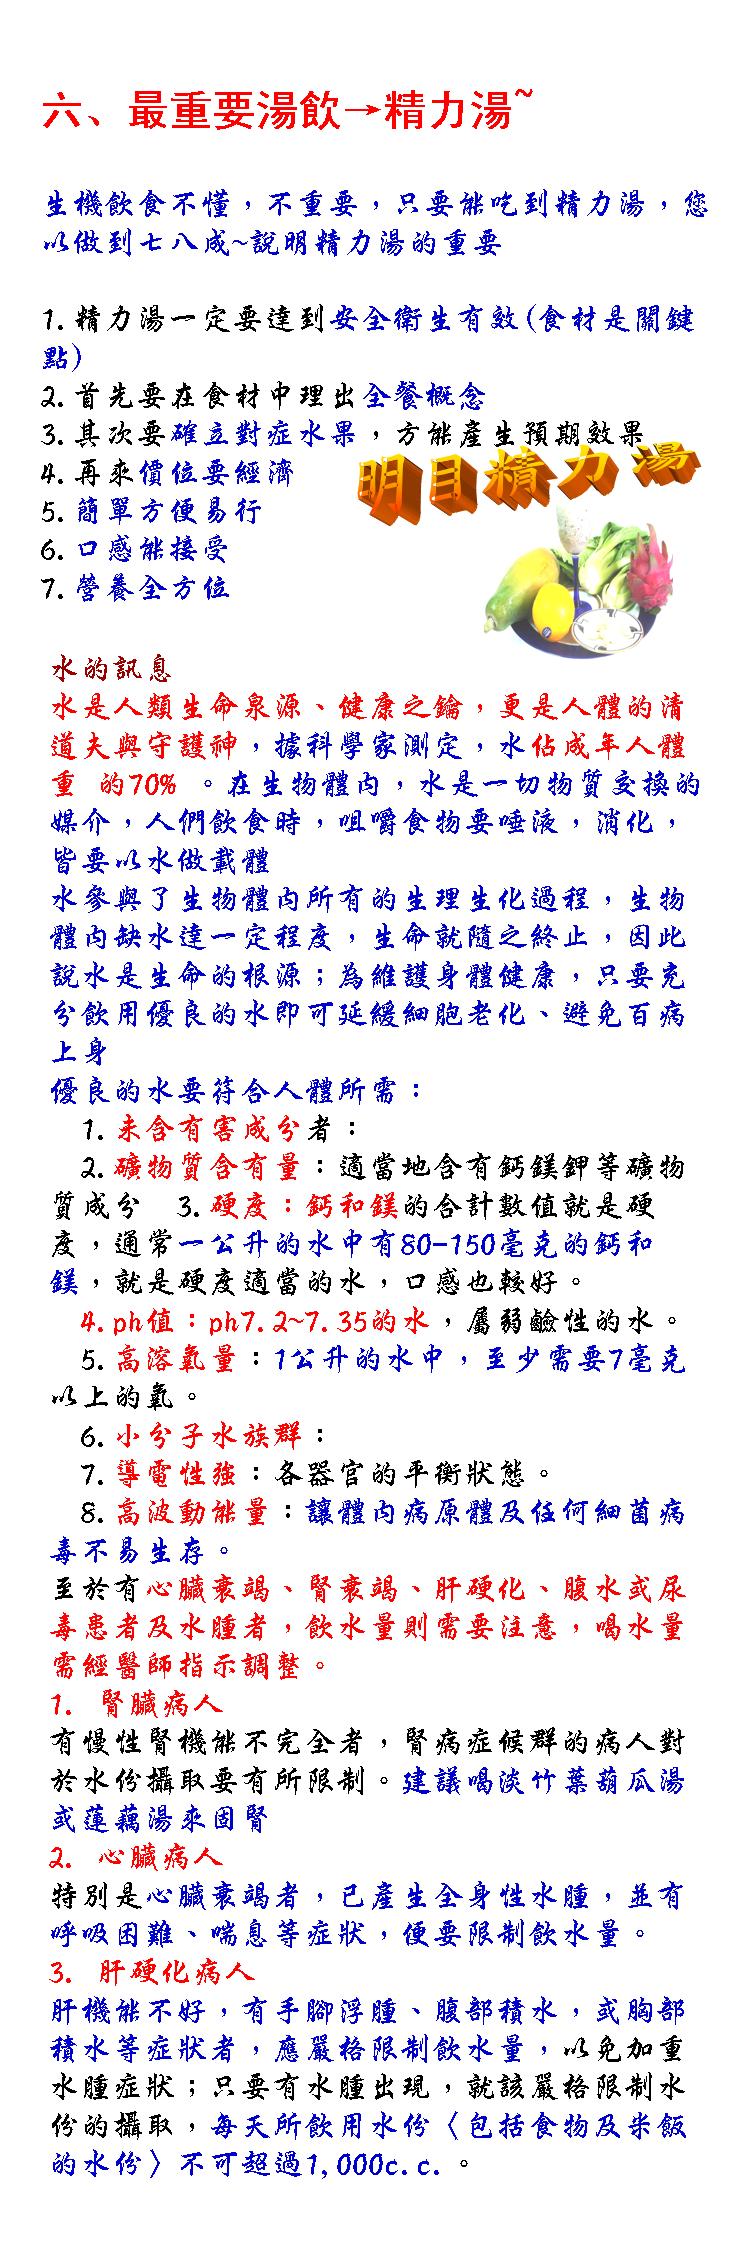 六、最重要湯飲→精力湯~
生機飲食不懂，不重要，只要能吃到精力湯，您
以做到七八成~說明精力湯的重要
1.精力湯一定要達到安全衛生有效(食材是關鍵
點)
2.首先要在食材中理出全餐概念
3.其次要確立對症水果，方能產生預期效果
4.再來價位要經濟
5.簡單方便易行
6.口感能接受
7.營養全方位
明目精力湯
水的訊息
水是人類生命泉源、健康之鑰，更是人體的清
道夫與守護神，據科學家測定，水佔成年人體
重 的70% 。在生物體內，水是一切物質交換的
媒介，人們飲食時，咀嚼食物要唾液，消化，
皆要以水做載體
水參與了生物體內所有的生理生化過程，生物
體內缺水達一定程度，生命就隨之終止，因此
說水是生命的根源；為維護身體健康，只要充
分飲用優良的水即可延緩細胞老化、避免百病
上身
優良的水要符合人體所需：
1.未含有害成分者：
2.礦物質含有量：適當地含有鈣鎂鉀等礦物
質成分 3.硬度：鈣和鎂的合計數值就是硬
度，通常一公升的水中有80-150毫克的鈣和
鎂，就是硬度適當的水，口感也較好。
4.ph值：ph7.2~7.35的水，屬弱鹼性的水。
5.高溶氧量：1公升的水中，至少需要7毫克
以上的氧。
6.小分子水族群：
7.導電性強：各器官的平衡狀態。
8.高波動能量：讓體內病原體及任何細菌病
毒不易生存。
至於有心臟衰竭、腎衰竭、肝硬化、腹水或尿
毒患者及水腫者，飲水量則需要注意，喝水量
需經醫師指示調整。
1. 腎臟病人
有慢性腎機能不完全者，腎病症候群的病人對
於水份攝取要有所限制。建議喝淡竹葉葫瓜湯
或蓮藕湯來固腎
2. 心臟病人
特別是心臟衰竭者，已產生全身性水腫，並有
呼吸困難、喘息等症狀，便要限制飲水量。
3. 肝硬化病人
肝機能不好，有手腳浮腫、腹部積水，或胸部
積水等症狀者，應嚴格限制飲水量，以免加重
水腫症狀；只要有水腫出現，就該嚴格限制水
份的攝取，每天所飲用水份〈包括食物及米飯
的水份〉不可超過1,000c.c.。